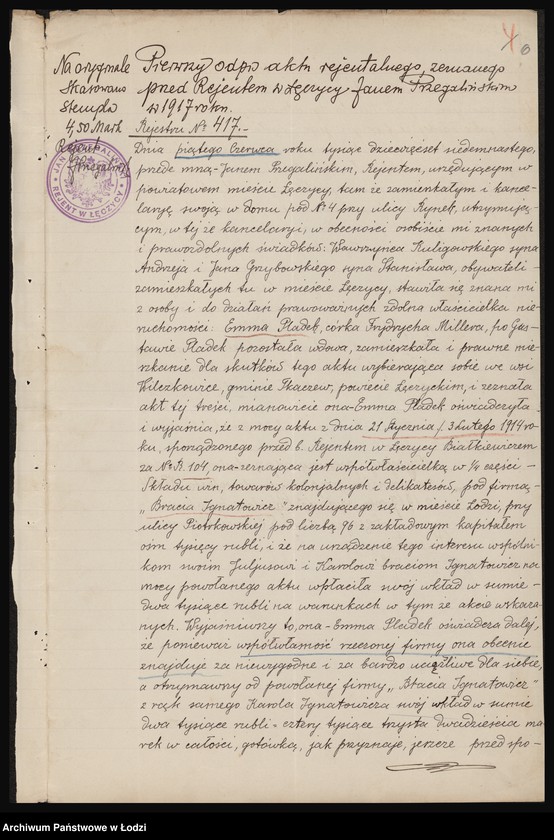 4
6
Na oryginale
skasowano
stempla
4,50 Mark
Rejent
JAN PRZEGALIŃSKI
REJENT W ŁĘCZYCY
Pierwszy odpis aktu rejentalnego, zeznanego
przed Rejentem w Łęczycy Janem Przegalińskim
w 1917 roku.
Rejestru № 417.-
Dnia piątego Czerwca roku tysiąc dziewięćset siedemnastego,
przede mną - Janem Przegalińskim, Rejentem, urzędującym w
powiatowem mieście Łęczycy, tamże zamieszkałym i kance-
larję swoją w domu pod № 4 przy ulicy Rynek, utrzymują-
cym, w tej że kancelaryi, w obecności osobiście mi znanych
i prawozdolnych świadków: Wawrzyńca Kuligowskiego syna
Andrzeja i Jana Grzybowskiego syna Stanisława, obywateli -
zamieszkałych tu w mieście Łęczycy, stawiła się znana mi
z osoby i do działań prawoważnych zdolna właścicielka nie-
ruchomości: Emma Pladek, córka Frydrycha Millera, po Gus-
tawie Pladek pozostała wdowa, zamieszkała i prawne mie-
szkanie dla skutków tego aktu wybierająca sobie we wsi
Wilczkowice, gminie Tkaczew, powiecie Łęczyckim, i zeznała
akt tej treści, mianowicie ona - Emma Pladek oświadczyła -
i wyjaśnia, że z mocy aktu z dnia 21 Stycznia / 3 Lutego 1914 ro-
ku, sporządzonego przed b. Rejentem w Łęczycy Białkiewiczem
za № R. 104, ona - zeznająca jest współwłaścicielką w ¼ części -
Składu win, towarów kolonjalnych i delikatesów, pod firmą -
„Bracia Ignatowicz" znajdującego się w mieście Łodzi, przy
ulicy Piotrkowskiej pod liczbą 96 z zakładowym kapitałem
ośm tysięcy rubli, i że na urządzenie tego interesu wspólni-
kom swoim Juljusowi i Karolowi braciom Ignatowicz na
mocy powołanego aktu wpłaciła swój wkład w sumie -
dwa tysiące rubli na warunkach w tym że akcie wskaza-
nych. Wyjaśniwszy to, ona - Emma Pladek oświadcza dalej,
że ponieważ współwłasność rzeczonej firmy ona obecnie
znajduje za niewygodne i za bardzo uciążliwe dla siebie,
a otrzymawszy od powołanej firmy „Bracia Ignatowicz"
z rąk samego Karola Ignatowicza swój wkład w sumie
dwa tysiące rubli = cztery tysiące trzysta dwadzieścia ma
rek w całości, gotówką, jak przyznaje, jeszcze przed spo -
Archiwum Państwowe w Łodzi